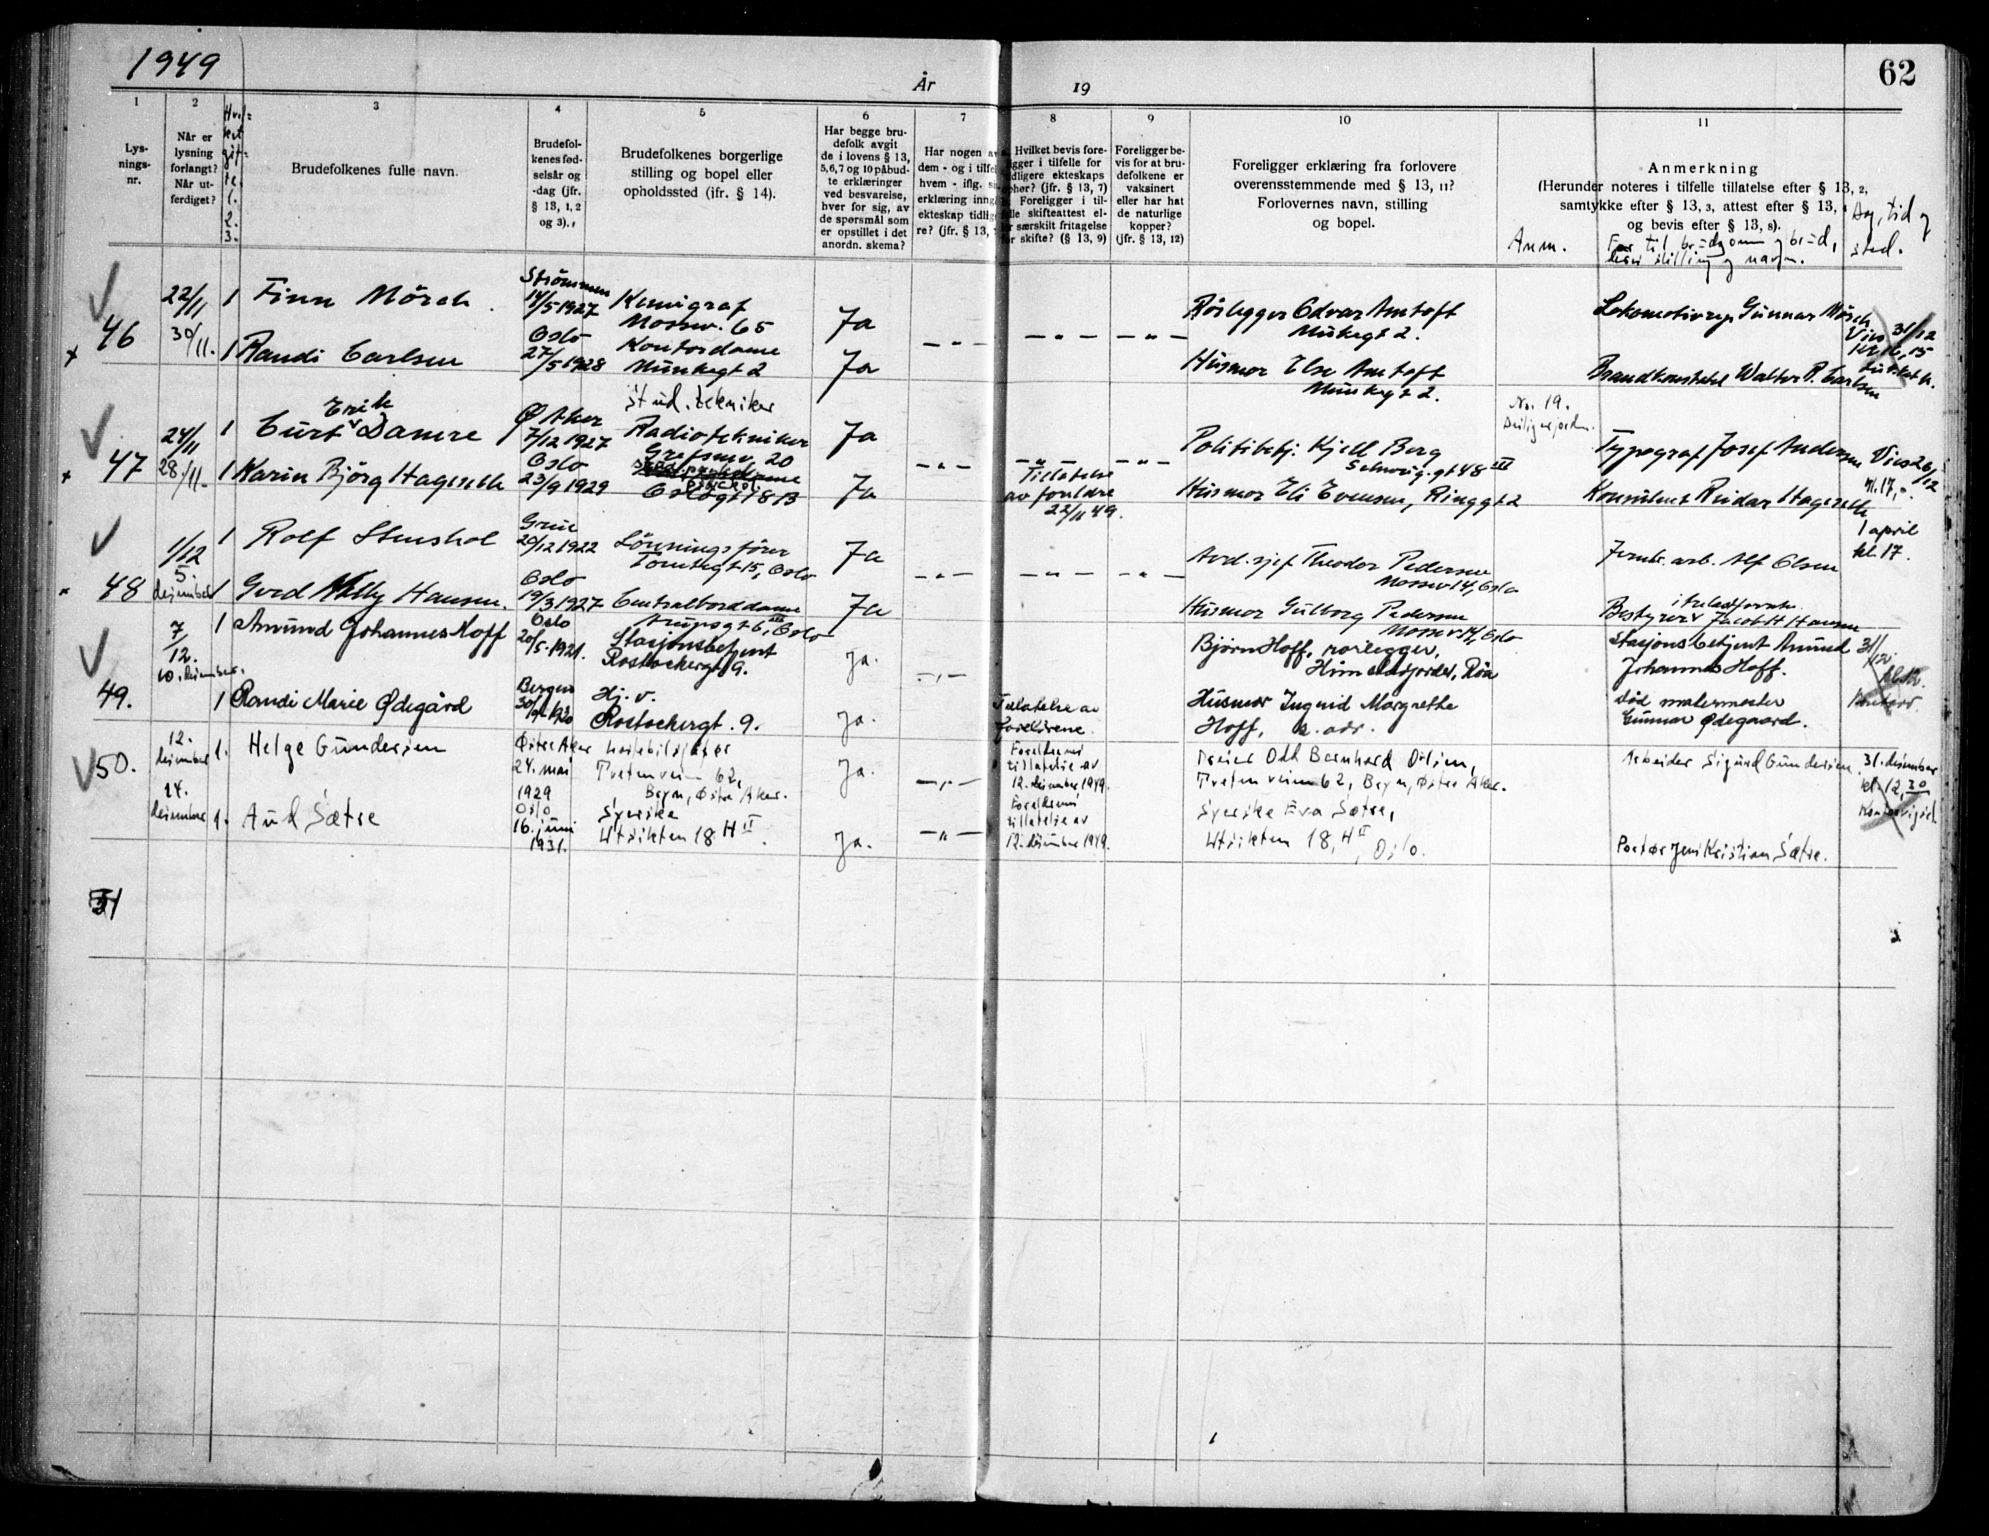 1949
År
19
62
1
2
3
4
5
6
7
8
9
10
11
Lys-
nings-
nr.
Når er
lysning
forlangt?
Når ut-
ferdiget?
Brudefolkenes fulle navn.
Brudefol-
kenes fød-
selsår og
-dag (jfr.
§ 13, 1, 2
og 3).
Brudefolkenes borgerlige
stilling og bopel eller
opholdssted (jfr. § 14).
Har begge bru-
defolk avgit
de i lovens § 13,
5,6,7 og 10 påbud-
te erklæringer
ved besvarelse,
hver for sig, av
de spørsmål som
er opstillet i det
anordn. skema?
Har nogen av
dem - og i tilfel
hvem - iflg.
erklæring inng
ekteskap tidlig
re? (jfr. § 13,
Hvilket bevis fore-
ligger i tilfelle for
tidligere ekteskaps
ophør? (jfr. § 13, 7)
Foreligger i til-
felle skifteattest el-
er særskilt fritagelse
for skifte? (§ 13, 9)
Foreligger be-
vis for at bru-
defolkene er
vaksinert
eller har hat
de naturlige
kopper?
(jfr. § 13, 12)
Foreligger erklæring fra forlovere
overensstemmende med § 13, 11?
Forlovernes navn, stilling
og bopel.
Anmerkning
(Herunder noteres i tilfelle tillatelse efter § 13, 2,
samtykke efter § 13, 3, attest efter § 13,
og bevis efter § 13, 8).
Anm.
Far til brudgom og brud,
stilling og navn.
Dag, tid og
sted.
46
22/11
30/11.
1 Finn Mörch
Strömmen
14/5 1927
Kemigraf
Mossev. 65
Ja
Rörlegger Edvar Amtoft
Munkegt 2.
Lokomotivrep Gunnar Mörch
31/12
1 Randi Carlsen
Oslo
27/5 1928
Kontordame
Munkegt 2
Ja
Husmor Else Amtoft
Munkegt 2.
Brandkonstabel Walter R. Carlsen
47
24/11
28/11.
1 Curt Erik Damre
Ø Aker
7/12 1927
Stud. tekniker
Radiotekniker
Grefsenv. 20
Ja
Politibetj. Kjell Berg
Schweig.gt 48 III
No. 19.
Typograf Josef Andersen
26/12
kl. 17,-
1 Karin Björg Hageseth
Oslo
23/9 1929
Oslogt 8 B
Ja
Tillatelse
av foreldre
22/11 49.
Husmor Eli Evensen, Ringgt 2
Konsulent Reidar Hageseth
48
1/12
5.
desember
1 Rolf Stenshol
Grue
20/12 1922
Lönningsförer
Tomtegt 15, Oslo
Ja
Avd. sjef Theodor Pedersen
Mossev 14, Oslo
Jernb. arb. Alf Olsen
1 april
kl. 17.
1 Gerd Nelly Hansen.
Oslo
19/3 1927
Centralborddame
Arupsgt 6, Oslo
Ja
Husmor Gulborg Pedersen
Mossev 14, Oslo
Bestyrer Jacob H Hansen
49.
7/12.
10. desember.
1 Amund Johannes Hoff
Oslo
20/5. 1921.
Stasjonsbetjent
Rostockergt 9.
Ja.
Bjørn Hoff, rørlegger,
Røa
Stasjonsbetjent Amund
Johannes Hoff.
31/12
1 Randi Marie Ødegård
Bergen
Hj. v.
Rostockergt. 9.
Ja.
Tillatelse av
foreldrene.
Husmor Ingrid Margrethe
Hoff, s. adr.
død malermester
Gunnar Ødegaard.
Kontoret.
50.
12.
desember
14.
desember
1. Helge Gundersen
Østre Aker
24. mai
1929
lastebilsjåfør
Tvetenveien 62,
Bryn, Østre Aker.
Ja.
Foreldrenes
tillatelse av
12. desember 1949.
Dreier Odd Bernhard Olsen,
Tvetenveien 62, Bryn, Østre Aker.
Arbeider Sigurd Gundersen.
31. desember
kl. 12,30
1. Aud Sætre
Oslo
16. juni
1931.
Syerske
Utsikten 18, H II.
Ja.
Foreldrenes
tillatelse av
12. desember 1949.
Syerske Eva Sætre,
Utsikten 18, H II, Oslo.
Portør Jens Kristian Sætre.
51